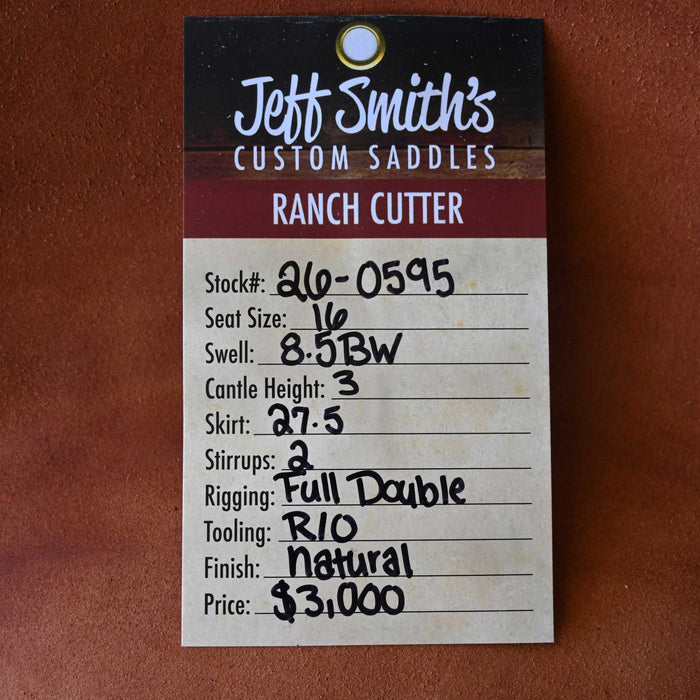 Jeff Smith's
CUSTOM SADDLES
RANCH CUTTER
Stock#: 26-0595
Seat Size: 16
Swell: 8.5BW
Cantle Height: 3
Skirt: 27.5
Stirrups: 2
Rigging: Full Double
Tooling: R/O
Finish: natural
Price: $3,000